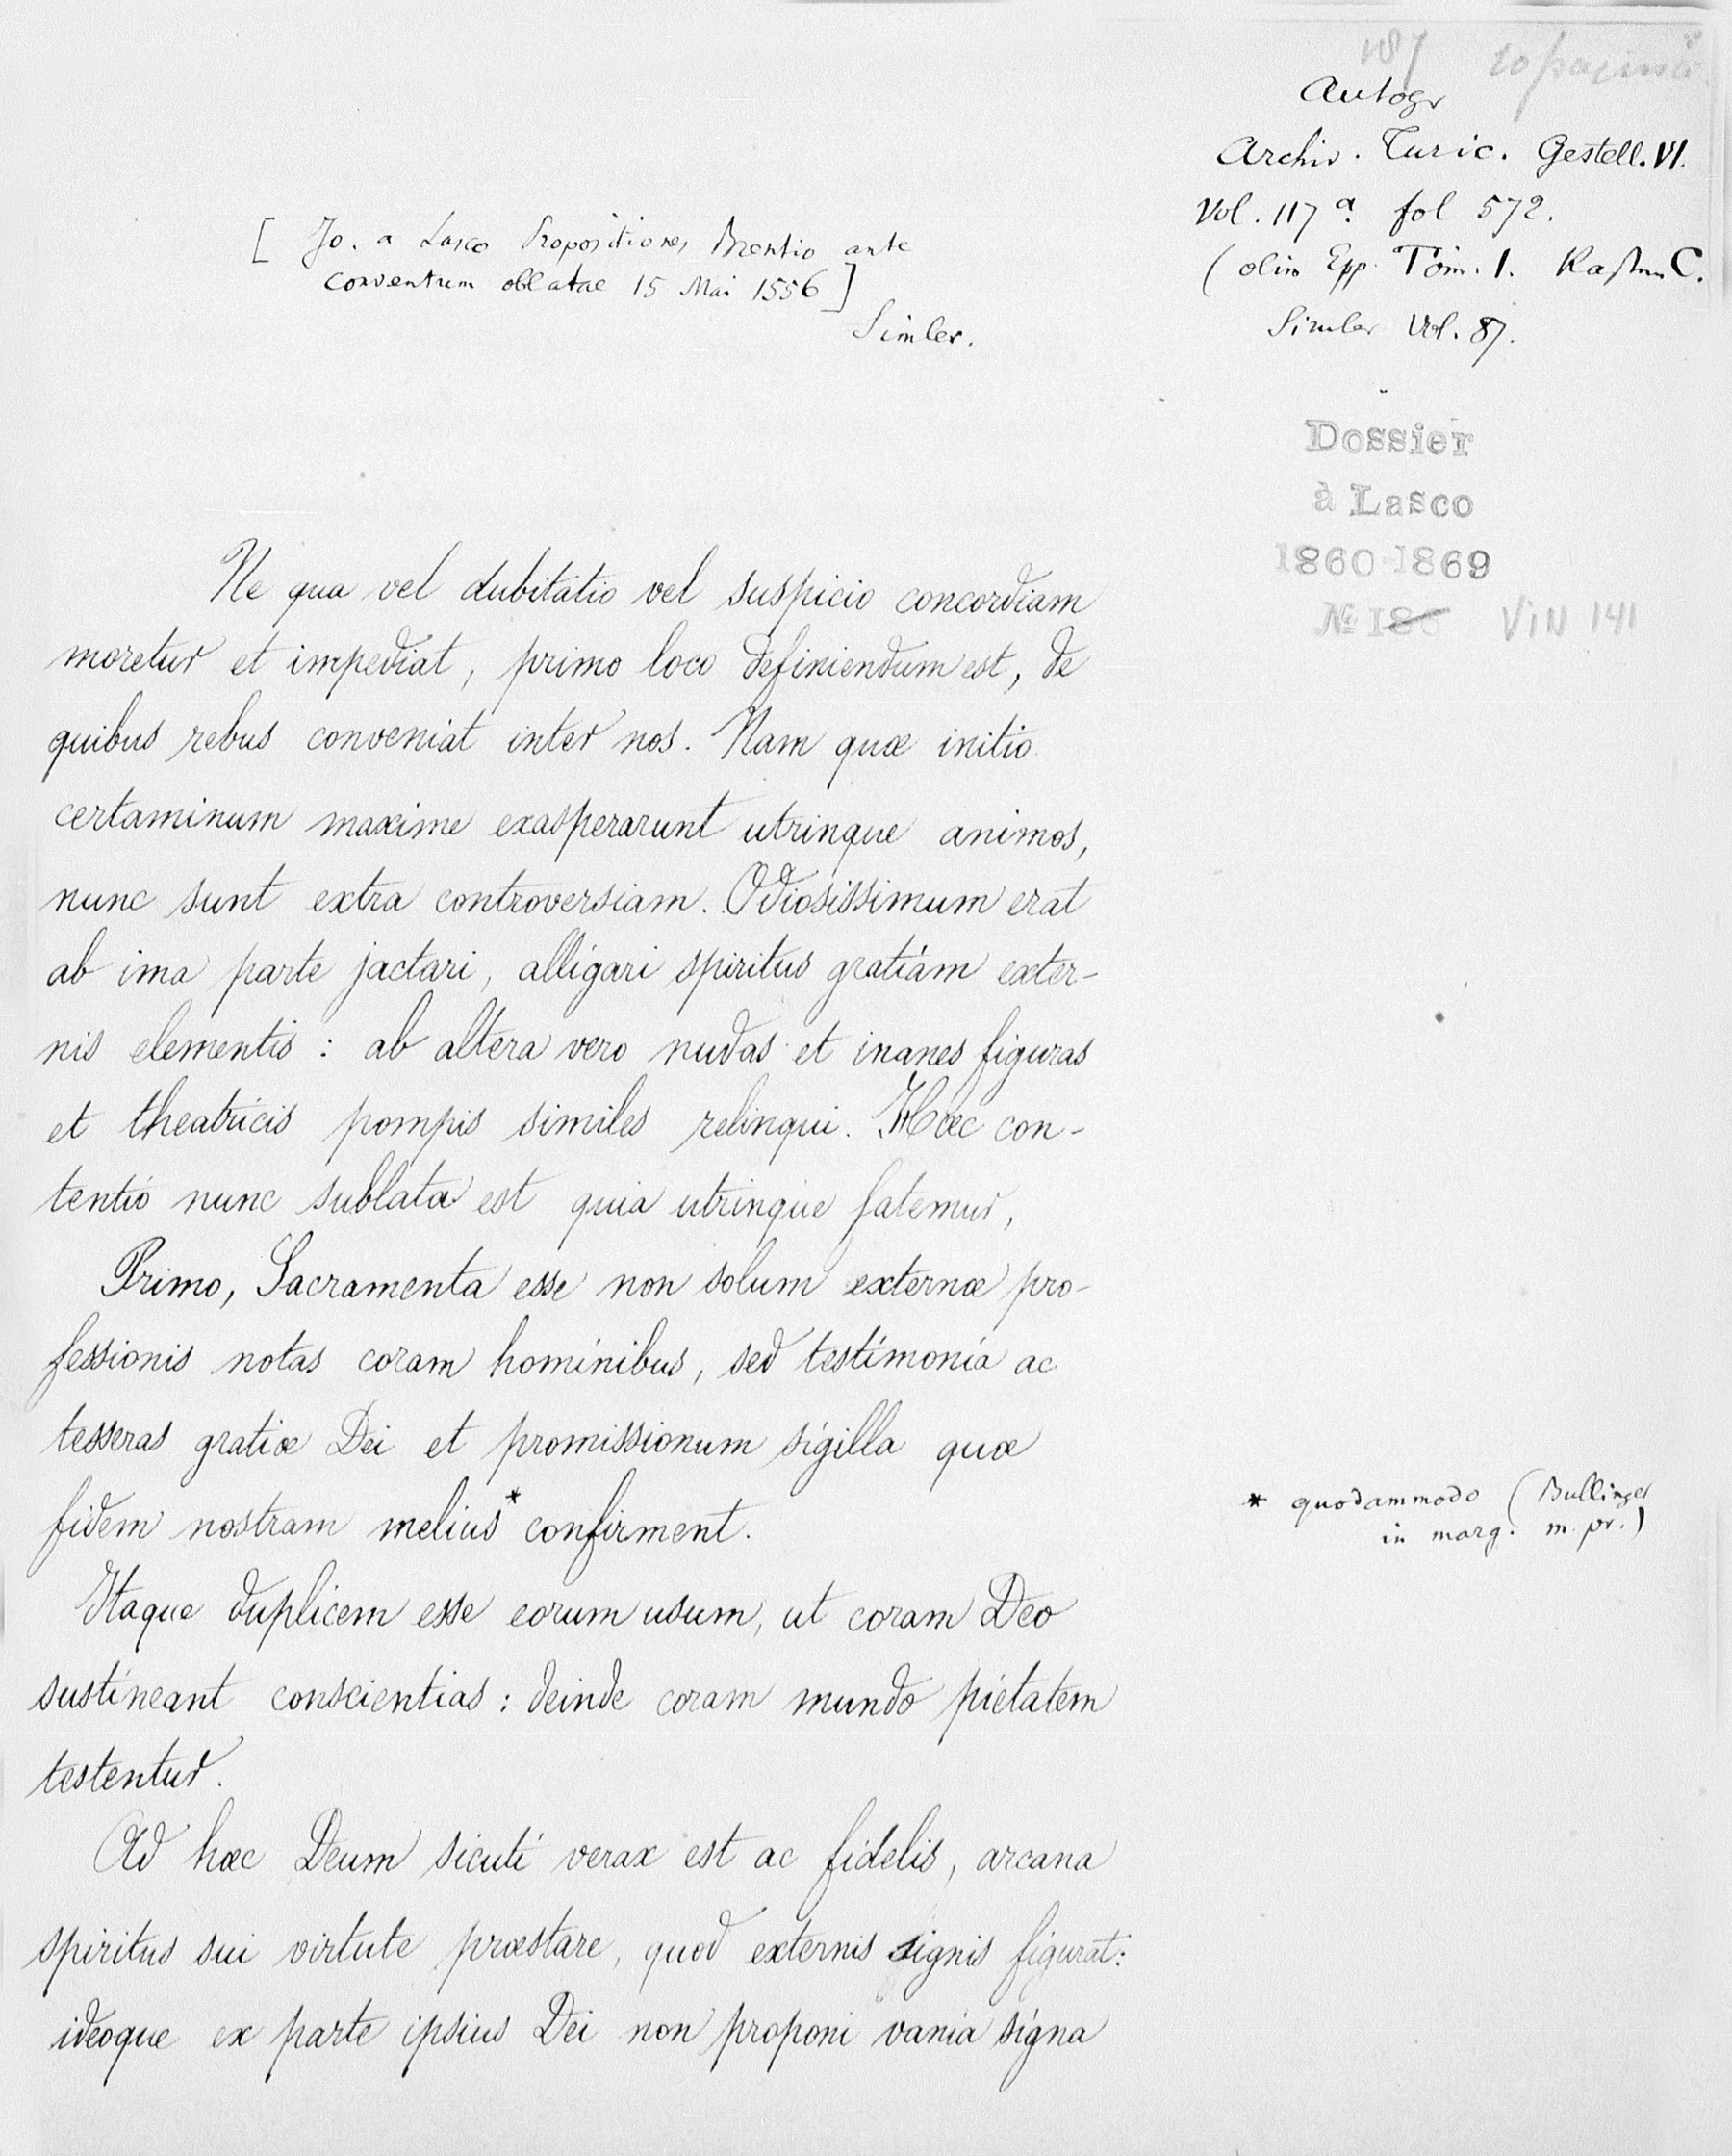 187
Autogr
Archiv. Turic. Gestell. VI.
Vol. 117 a. fol 572.
(olim Epp. Tom. I. C.
Simler Vol. 87.
[ Jo. a Lasco Propositiones Brentio ante
conventum oblatae 15 Mai 1556 ]
Simler.
Dossier
à Lasco
1860-1869
№ 186 VIN 141
Ne qua vel dubitatio vel suspicio concordiam
moretur et impediat, primo loco definiendum est, de
quibus rebus conveniat inter nos. Nam quæ initio
certaminum maxime exasperarunt utrinque animos,
nunc sunt extra controversiam. Odiosissimum erat
ab ima parte jactari, alligari spiritus gratiam exter-
nis elementis : ab altera vero nudas et inanes figuras
et theatricis pompis similes relinqui. Hæc con-
tentio nunc sublata est quia utrinque fatemur,
Primo, Sacramenta esse non solum externæ pro-
fessionis notas coram hominibus, sed testimonia ac
tesseras gratiæ Dei et promissionum sigilla quæ
fidem nostram melius* confirment.
* quodammodo (Bullinger
in marg. m. pr.)
Itaque duplicem esse eorum usum, ut coram Deo
sustineant conscientias : deinde coram mundo pietatem
testentur.
Ad hæc Deum sicuti verax est ac fidelis, arcana
spiritus sui virtute præstare, quod externis signis figurat:
ideoque ex parte ipsius Dei non proponi vania signa